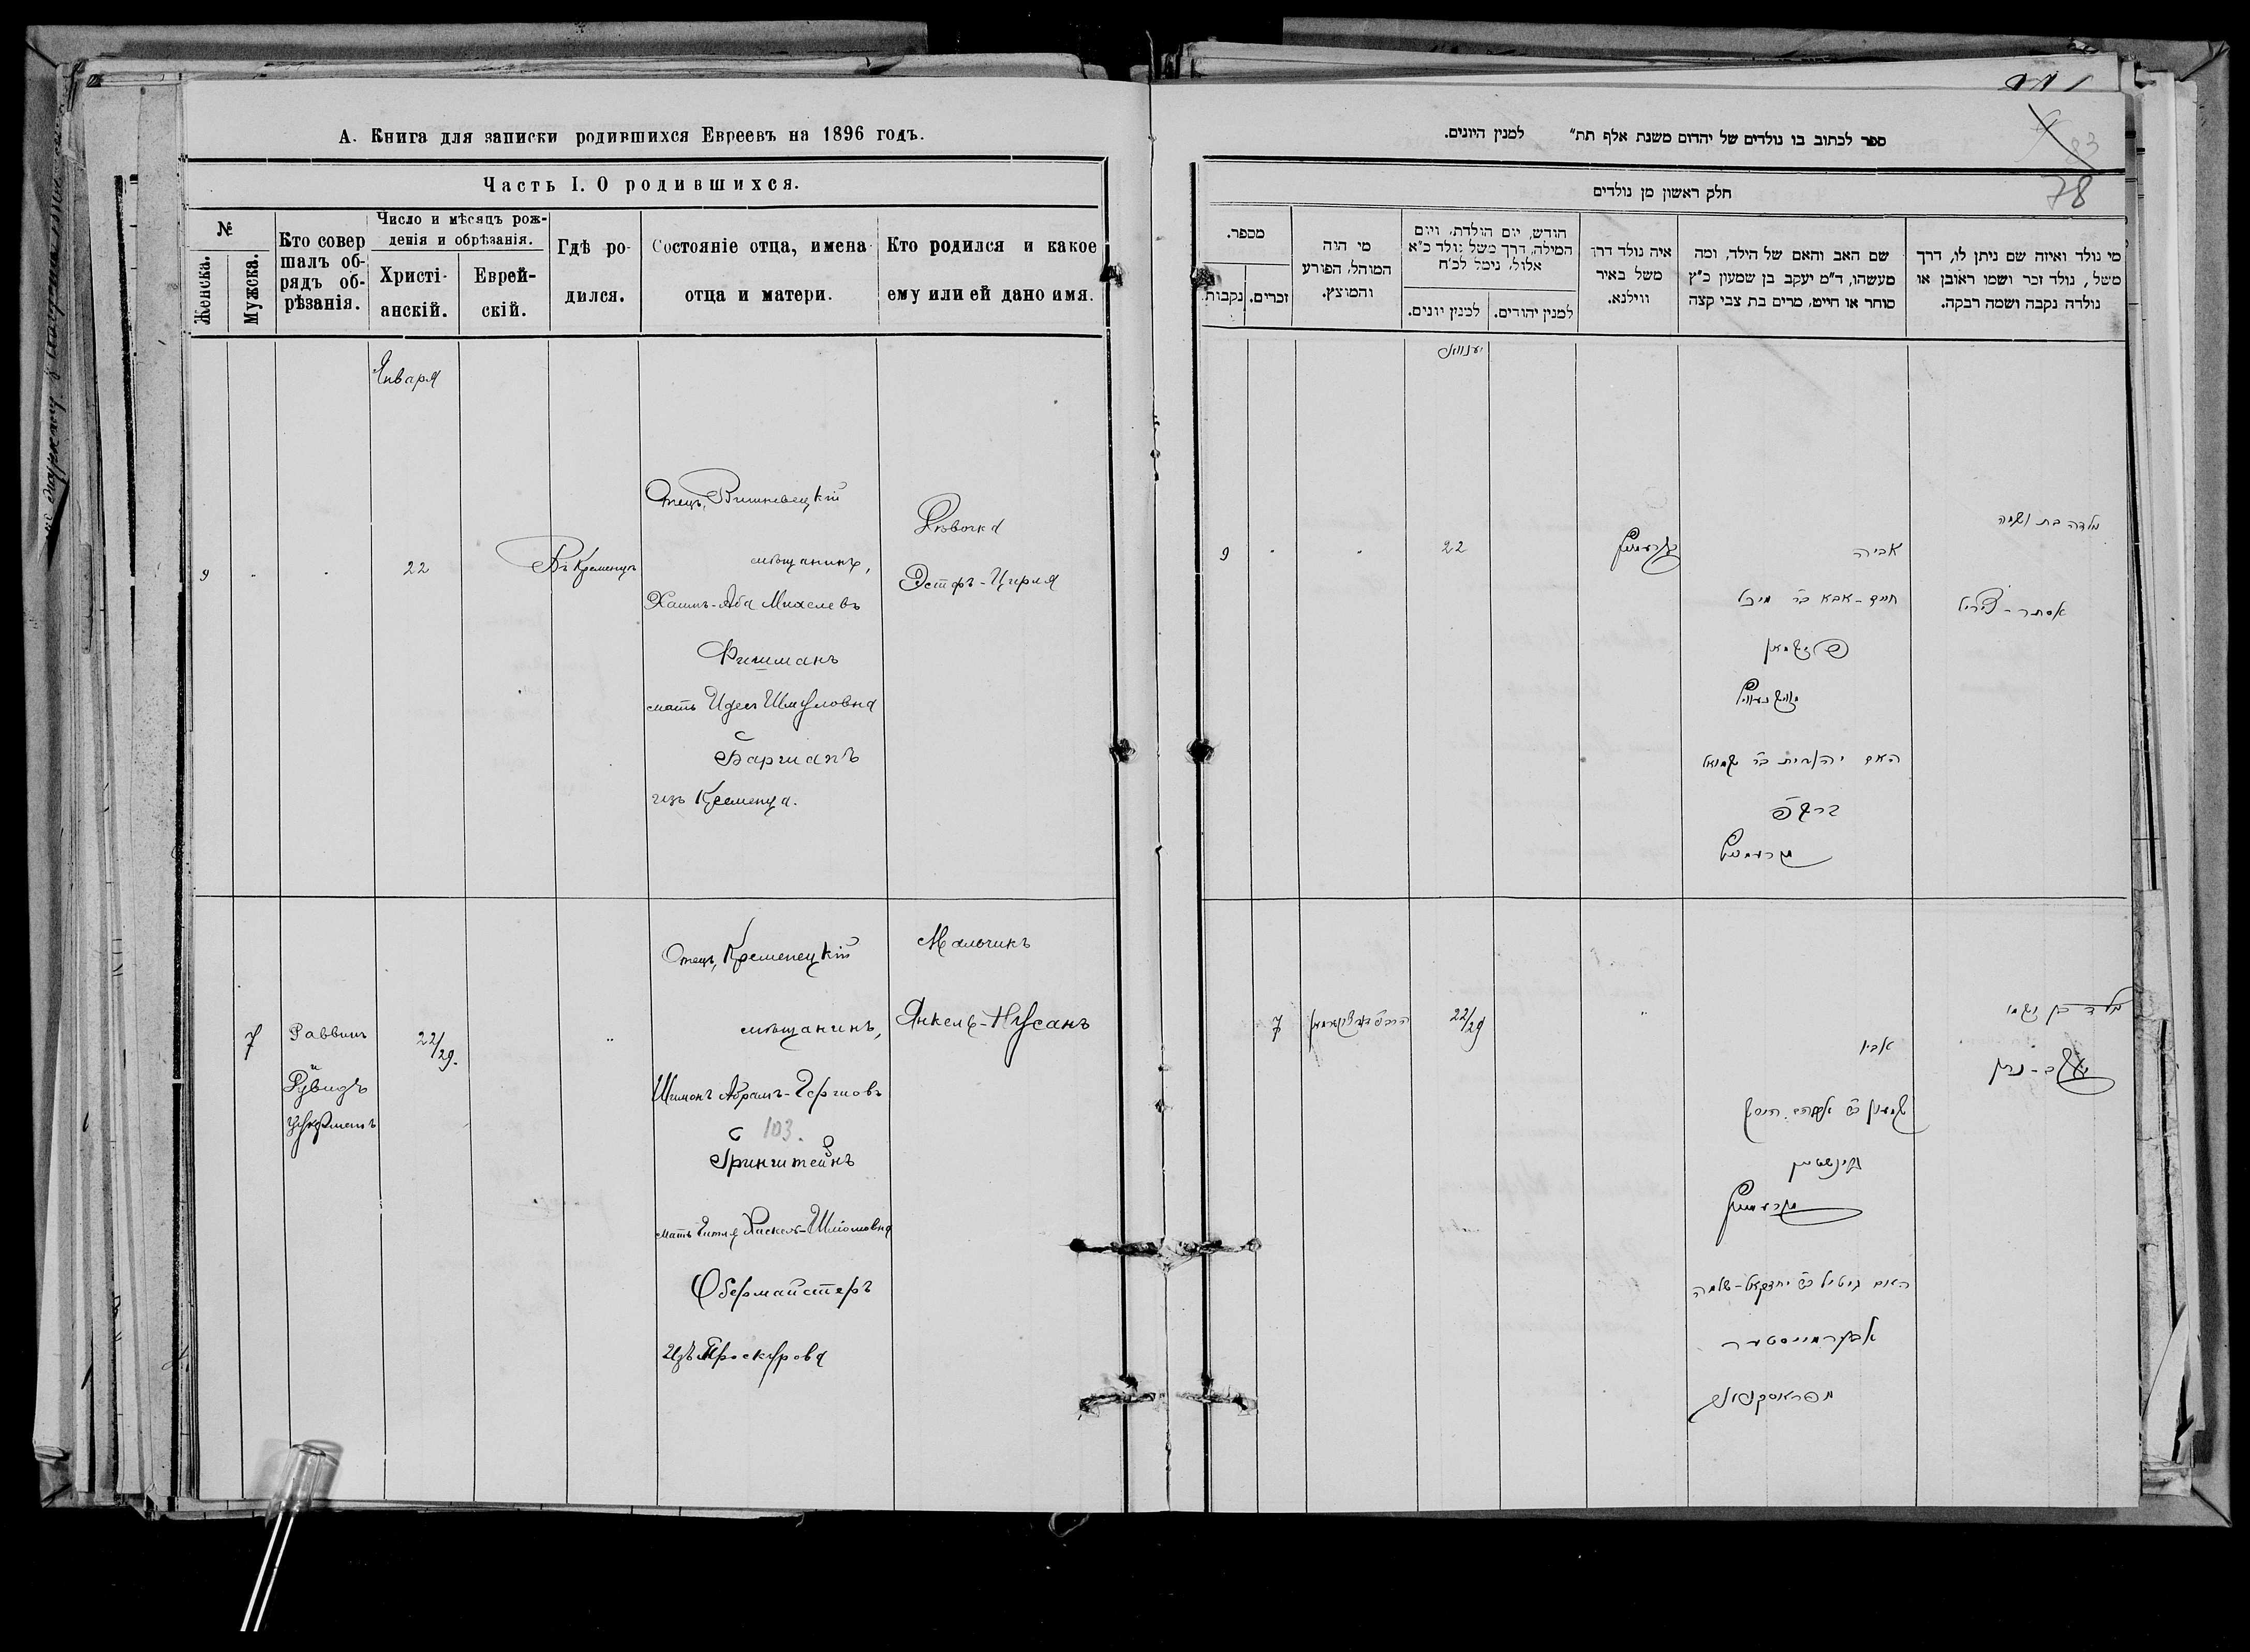 А. Книга для записки родившихся Евреевъ на 1896 годъ.
Часть I. О родившихся.
№
Женска.
Мужска.
Кто совер
шалъ об-
рядъ об-
рѣзанія.
Число и мѣсяцъ рож-
денія и обрѣзанія.
Христі-
анскій.
Еврей-
скій.
Гдѣ ро-
дился.
Состояніе отца, имена
отца и матери.
Кто родился и какое
ему или ей дано имя.
Января
9
22
Въ Кременцѣ
Отецъ, Вишневецкій
мѣщанинъ,
Хаимъ-Аба Михелевъ
Фишманъ
мать Идесъ Шмуловна
из Кременца.
Дѣвочка
Эстфь-Цирля
7
Раввинъ
22/29.
"
Отецъ, Кременецкій
мѣщанинъ,
Шимонъ Абрамъ-Гершовъ
103.
Гринштейнъ
мать Гитля Хаскель-Шліомовна
Обермайстеръ
Изъ Проскурова
Мальчикъ
Янкель-Нусанъ
ספר לכתוב בו נולדים של יהדום משנת אלף תת״ למנין היונים.
83
78
חלק ראשון מן נולדים
מספר.
נקבות.
זכרים.
מי היה
המוהל, הפורע
והמוצץ.
חודש, יום הולדת, ויום
המילה, דרך משל נולד כ״א
אלול, נימל לכ״ח
למנין יונים.
למנין יהודים.
איה נולד דרך
משל באיר
ווילנא.
שם האב והאם של הילד, ומה
מעשהו, ד״מ יעקב בן שמעון כ״ץ
סוחר או חייט, מרים בת צבי קצה
מי נולד ואיזה שם ניתן לו, דרך
משל, נולד זכר ושמו ראובן או
נולדה נקבה ושמה רבקה.
יענוואר
9
22
אביה
חיים-אבא ב״ר מיכל
פישמאן
ילדה בת ושמה
אסתר-צירל
7
22/29
"
אביו
גרינשטיין
האם גיטיל ב״ר יחזקאל-שלמה
אבערמייסטער
ילד בן ושמו
יעקב-נתן